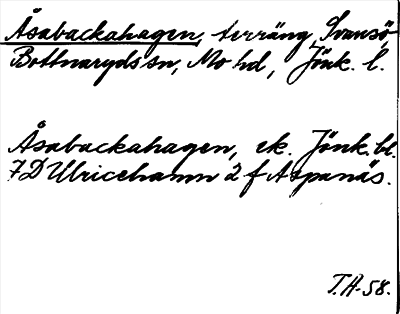 Åsabackahagen, terräng, Svansö,
Bottnaryds sn, Mo hd, Jönk. l.
Åsabackahagen, ek. Jönk. bl.
7D Ulricehamn 2 f Aspanäs.
T.A-58.